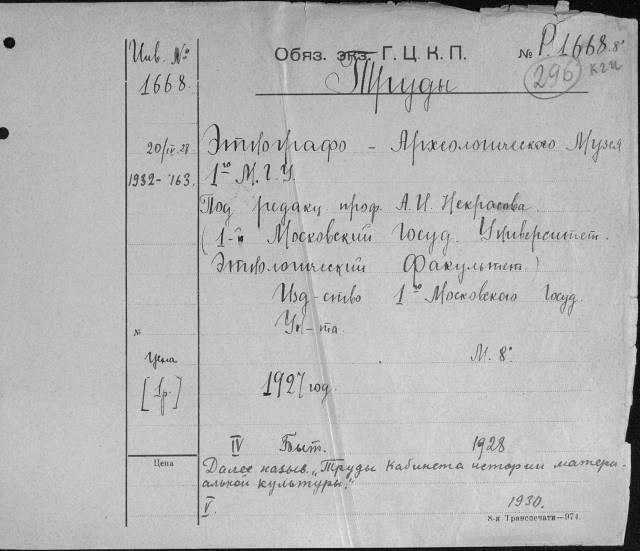 Инв. №
1668.
Обяз. экз. Г. Ц. К. П.
№ Р1668.8°
296
кги
Труды
20/IV-28
Этнографо - Археологического Музея
1932-163.
1го М.Г.У.
Под редакц. проф. А.И. Некрасова.
(1-й Московский Госуд. Университет.
Этнологический Факультет)
Изд-ство 1го Московского Госуд.
Ун-та.
№
Цена
М. 8°
[1р.]
1927 год.
IV Быт. 1928
Цена
Далее назыв. „Труды Кабинета истории матери-
альной культуры."
V. 1930.
8-я Транспечати—974.